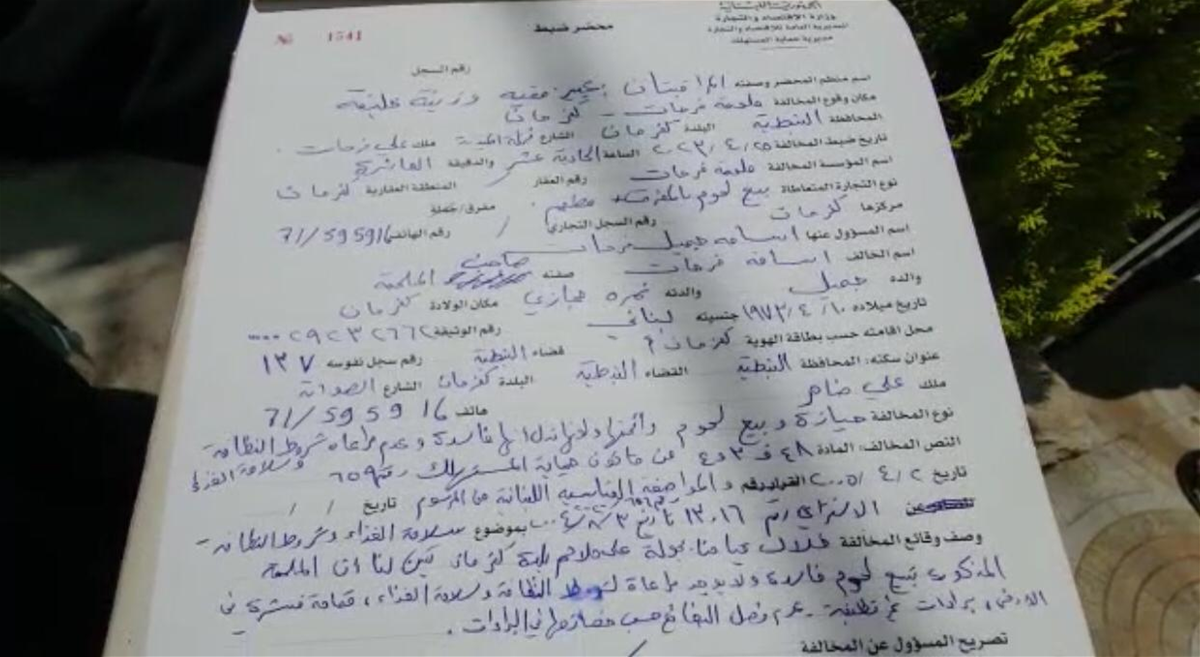 الجمهورية اللبنانية
وزارة الاقتصاد والتجارة
المديرية العامة للاقتصاد والتجارة
مديرية حماية المستهلك
محضر ضبط
№ 1541
رقم السجل
اسم منظم المحضر وصفته المراقبتان عبير فقيه وزينة خليفة
مكان وقوع المخالفة ملحمة فرحات - كفررمان
المحافظة النبطية البلدة كفررمان الشارع ملك علي فرحات .
تاريخ ضبط المخالفة ٢٠٢٣/٤/٢٥ الساعة الحادية عشر والدقيقة العاشرة
اسم المؤسسة المخالفة ملحمة فرحات رقم العقار المنطقة العقارية كفررمان
نوع التجارة المتعاطاة بيع لحوم بالمفرق مفرق/جملة
مركزها كفررمان رقم السجل التجاري / رقم الهاتف 71/595916
اسم المسؤول عنها اسامة جميل فرحات
اسم المخالف اسامة فرحات صفته صاحب الملحمة
والده جميل والدته نمره حجازي مكان الولادة كفررمان
تاريخ ميلاده ١٩٧٣/٤/١٠ جنسيته لبناني رقم الوثيقة ٠٠٠٠٢٩٢٣٢٦٦٢
محل اقامته حسب بطاقة الهوية كفررمان قضاء النبطية رقم سجل نفوسه ١٣٧
عنوان سكنه: المحافظة النبطية القضاء النبطية البلدة كفررمان الشارع
ملك علي ضاهر هاتف 71/595916
نوع المخالفة حيازة وبيع لحوم فاسدة وعدم مراعاة شروط النظافة وسلامة الغذاء
النص المخالف: المادة ٤٨ ف ٣ و٤ من قانون حماية المستهلك رقم ٦٥٩
تاريخ ٢٠٠٥/٤/٢ القرار رقم والمواصفة القياسية اللبنانية من المرسوم تاريخ / /
الاشتراعي رقم ١٣٠١٦ تاريخ ٢٠٠٤/٨/٣ بموضوع سلامة الغذاء وشروط النظافة -
وصف وقائع المخالفة خلال قيامنا بجولة على ملاحم بلدة كفررمان تبين لنا ان الملحمة
المذكورة تبيع لحوم فاسدة ولا يوجد مراعاة لشروط النظافة وسلامة الغذاء ، قمامة منتشرة في
الارض ، برادات غير نظيفة - عدم فصل البضائع حسب خصائصها في البرادات .
تصريح المسؤول عن المخالفة